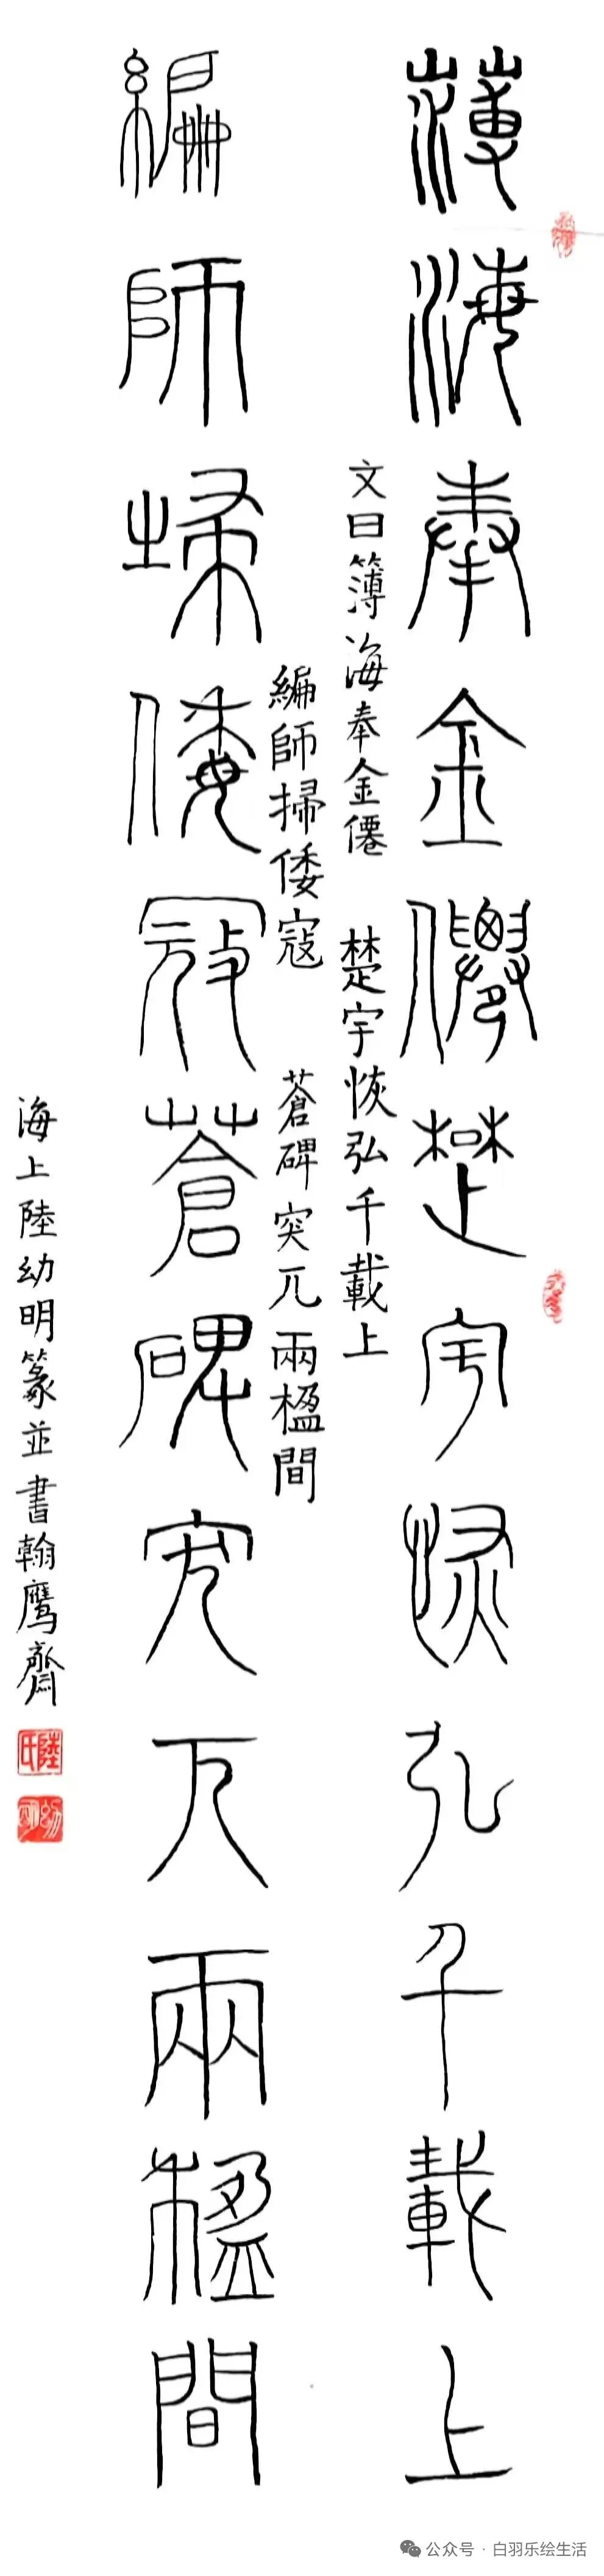 薄海奉金僊楚宇恢弘千載上
文曰簿海奉金僊 楚宇恢弘千載上
編師掃倭寇 蒼碑突兀兩楹間
編師埽倭寇蒼碑突兀兩楹間
海上陸幼明篆並書翰鹰齋
公众号 · 白羽乐绘生活